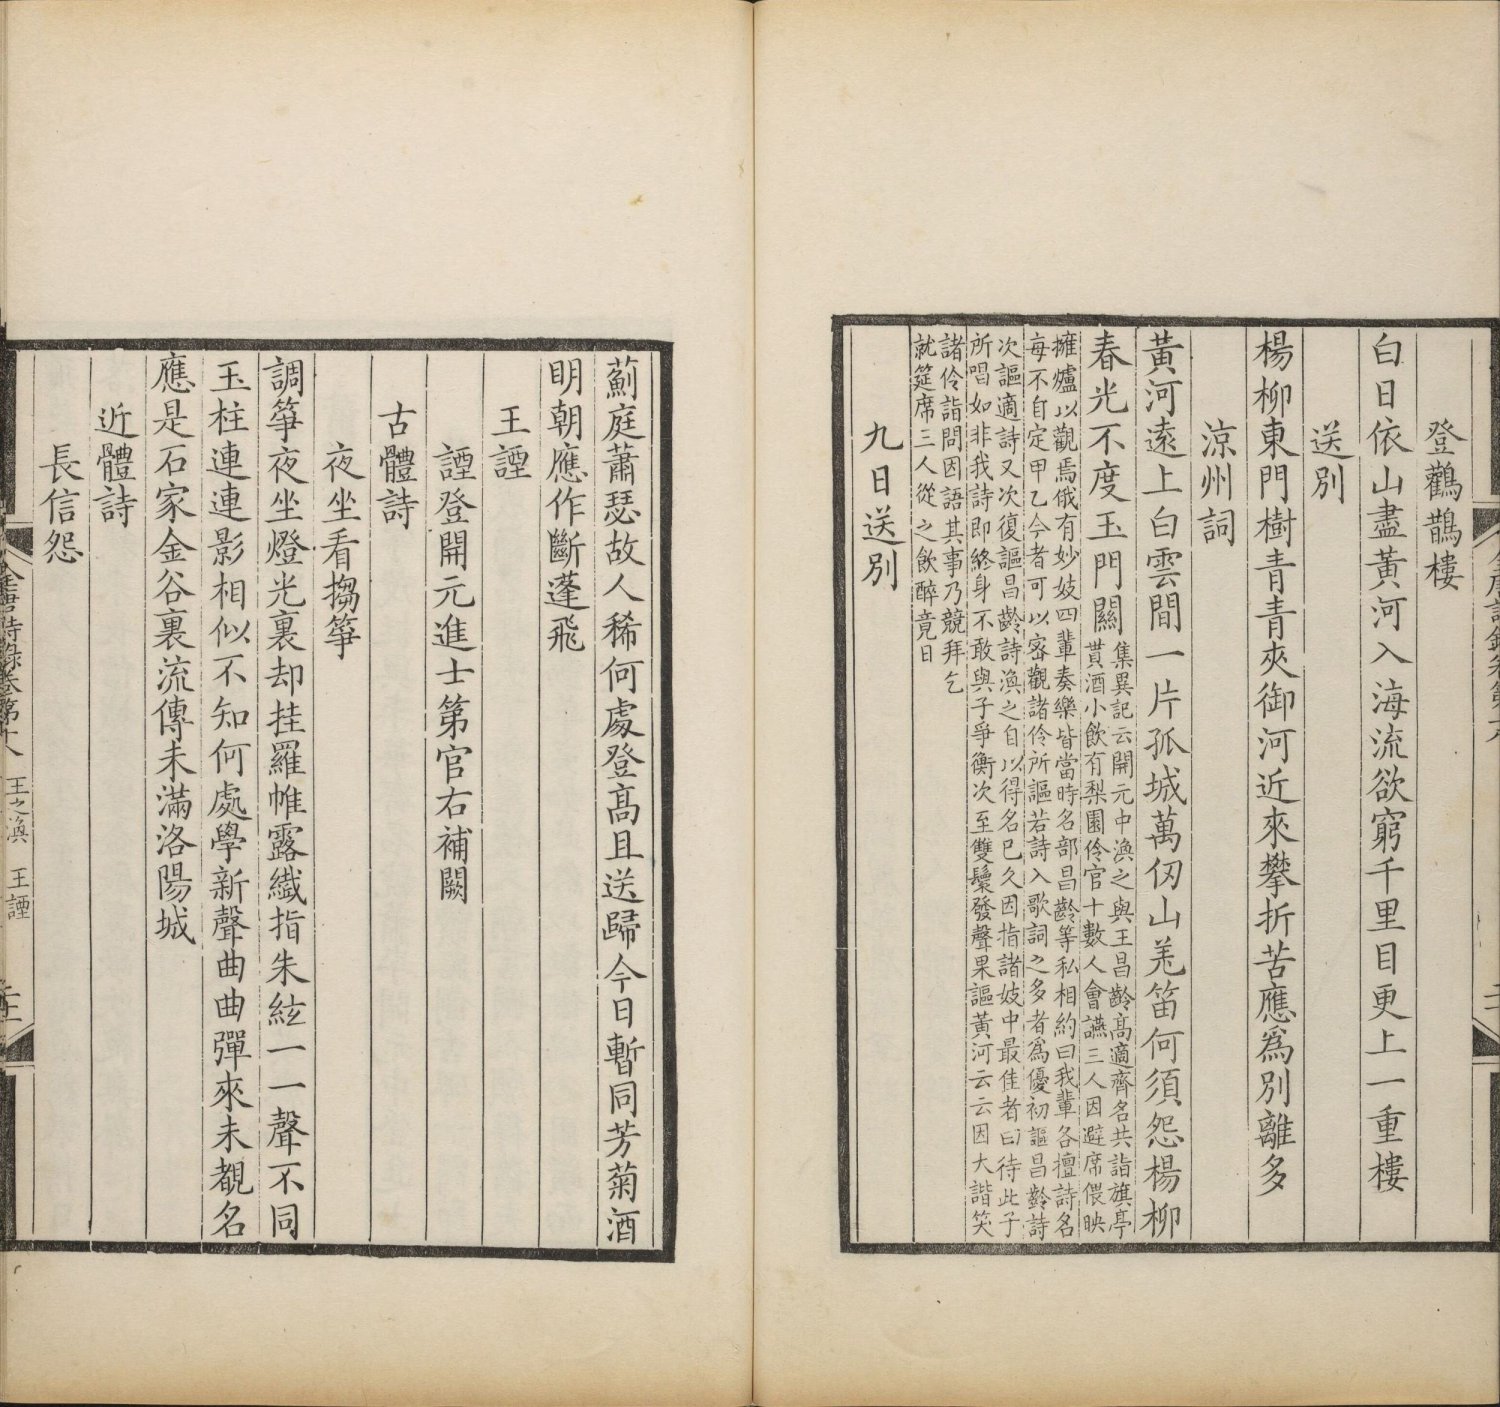 登鸛鵲樓
白日依山盡黃河入海流欲窮千里目更上一重樓
送別
楊柳東門樹青青夾御河近來攀折苦應爲別離多
涼州詞
黃河遠上白雲間一片孤城萬仞山羌笛何須怨楊柳
春光不度玉門關
集異記云開元中渙之與王昌齡高適齊名共詣旗亭
貰酒小飲有梨園伶官十數人會讌三人因避席偎映
擁爐以觀焉俄有妙妓四輩奏樂皆當時名部昌齡等私相約曰我輩各擅詩名
每不自定甲乙今者可以密觀諸伶所謳若詩入歌詞之多者爲優初謳昌齡詩
次謳適詩又次復謳昌齡詩渙之自以得名已久因指諸妓中最佳者曰待此子
所唱如非我詩即終身不敢與子爭衡次至雙鬟發聲果謳黃河云云因大諧笑
諸伶詣問因語其事乃競拜乞
就筵席三人從之飲醉竟日
九日送別
薊庭蕭瑟故人稀何處登高且送歸今日暫同芳菊酒
明朝應作斷蓬飛
王諲
諲登開元進士第官右補闕
古體詩
夜坐看搊箏
調箏夜坐燈光裏却挂羅帷露纖指朱絃一一聲不同
玉柱連連影相似不知何處學新聲曲曲彈來未覩名
應是石家金谷裏流傳未滿洛陽城
近體詩
長信怨
全唐詩錄卷第十八 王之渙 王諲